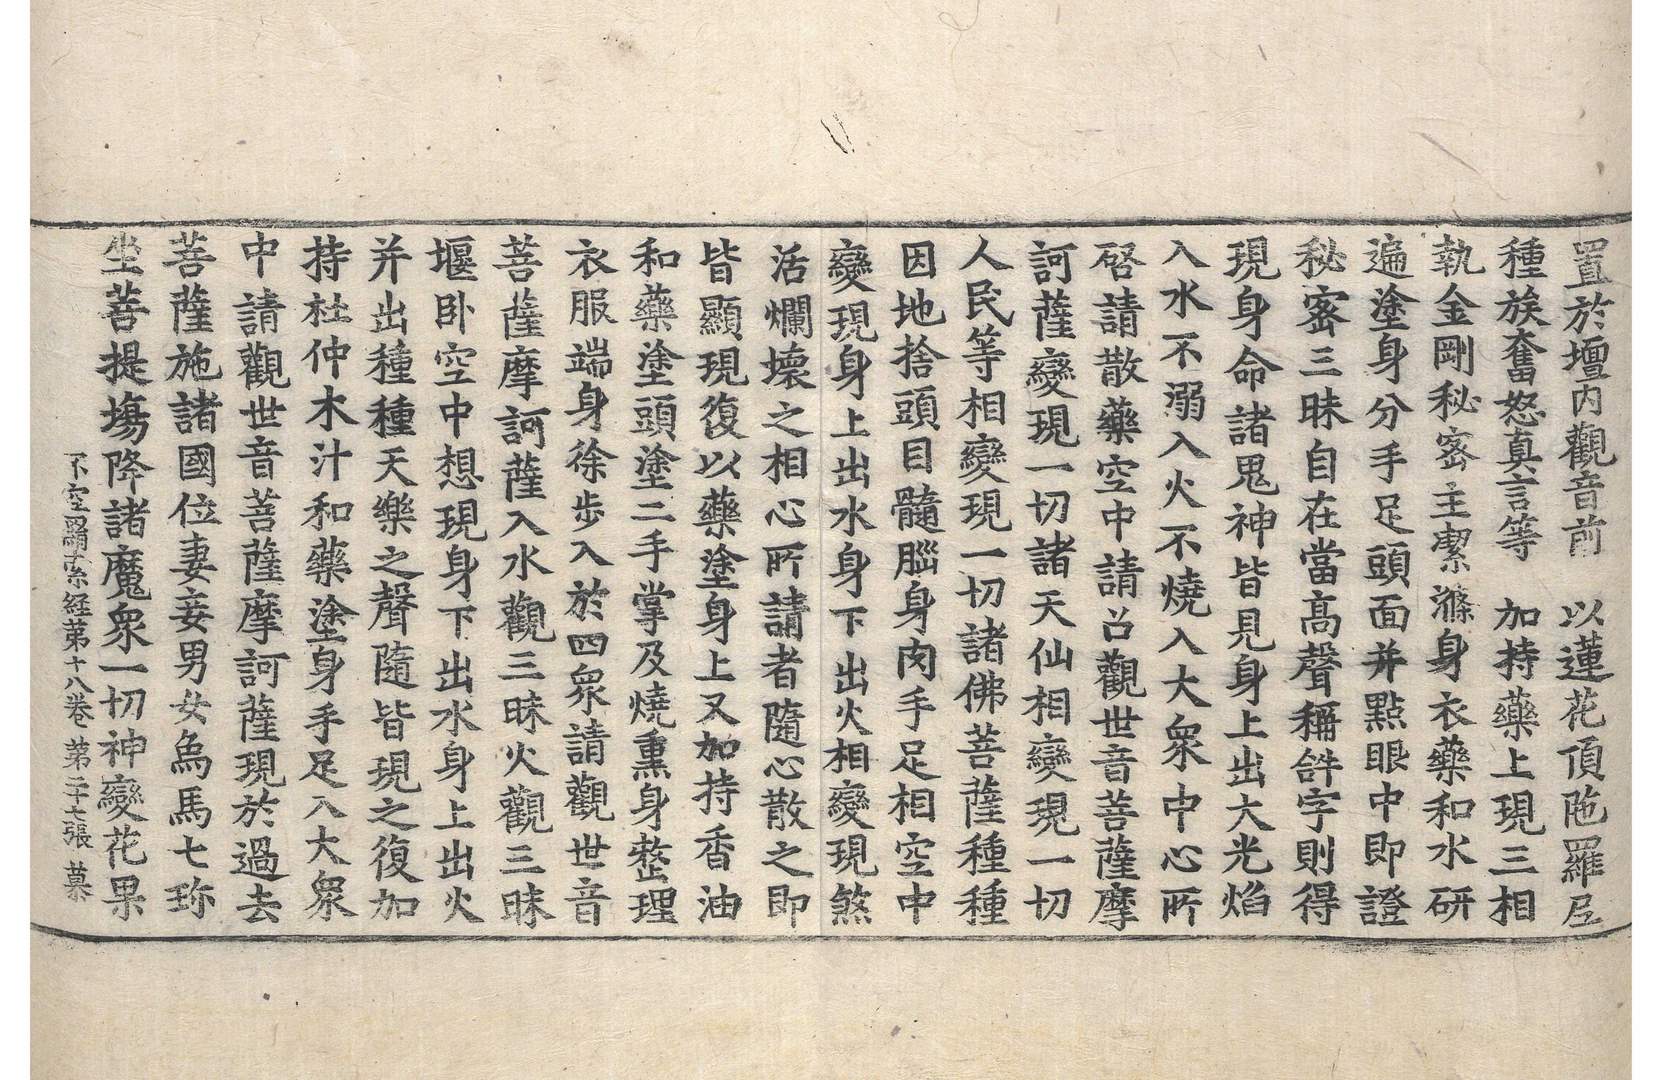 置於壇内觀音前　以蓮花頂陁羅尼
種族奮怒真言等　加持藥上現三相
執金剛秘密主潔滌身衣藥和水研
遍塗身分手足頭面并點眼中即證
秘密三昧自在當高聲稱𤙖字則得
現身命諸鬼神皆見身上出大光焰
入水不溺入火不燒入大衆中心所
啓請散藥空中請召觀世音菩薩摩
訶薩變現一切諸天仙相變現一切
人民等相變現一切諸佛菩薩種種
因地捨頭目髓腦身肉手足相空中
變現身上出水身下出火相變現煞
活爛壞之相心所請者隨心散之即
皆顯現復以藥塗身上又加持香油
和藥塗頭塗二手掌及燒熏身整理
衣服端身徐步入於四衆請觀世音
菩薩摩訶薩入水觀三昧火觀三昧
堰卧空中想現身下出水身上出火
并出種種天樂之聲隨皆現之復加
持杜仲木汁和藥塗身手足入大衆
中請觀世音菩薩摩訶薩現於過去
菩薩施諸國位妻妾男女鳥馬七珎
坐菩提塲降諸魔衆一切神變花果
不空羂索経苐十八卷　苐二十七張　慕